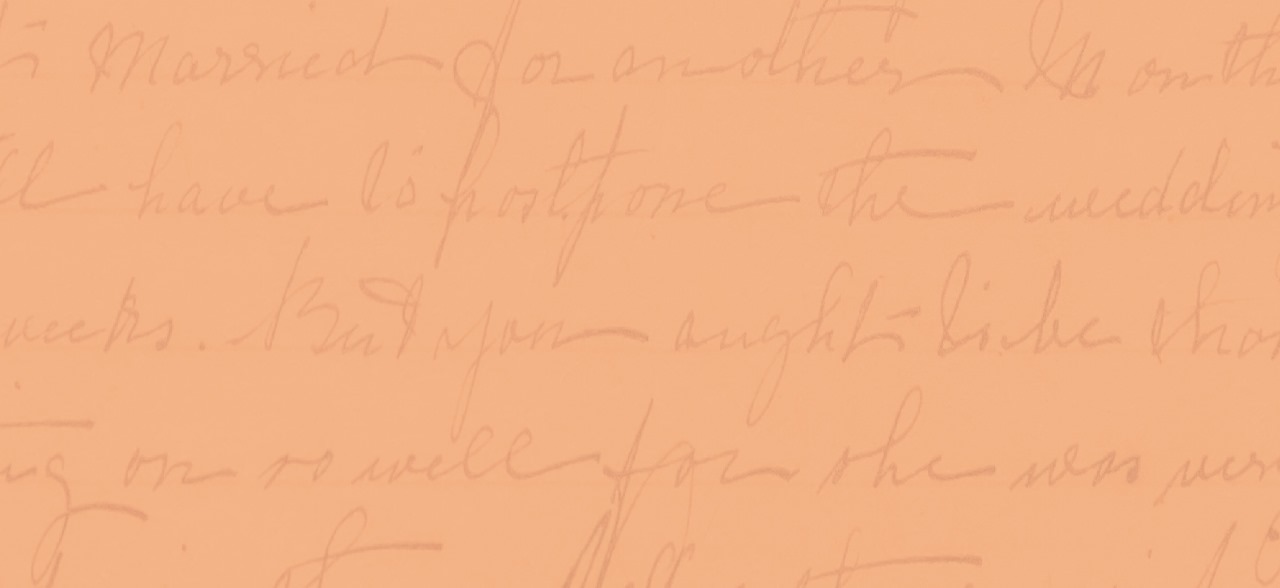 Married for another Month
have to postpone the weddin
weeks. But you aught to be
on so well for she was ver